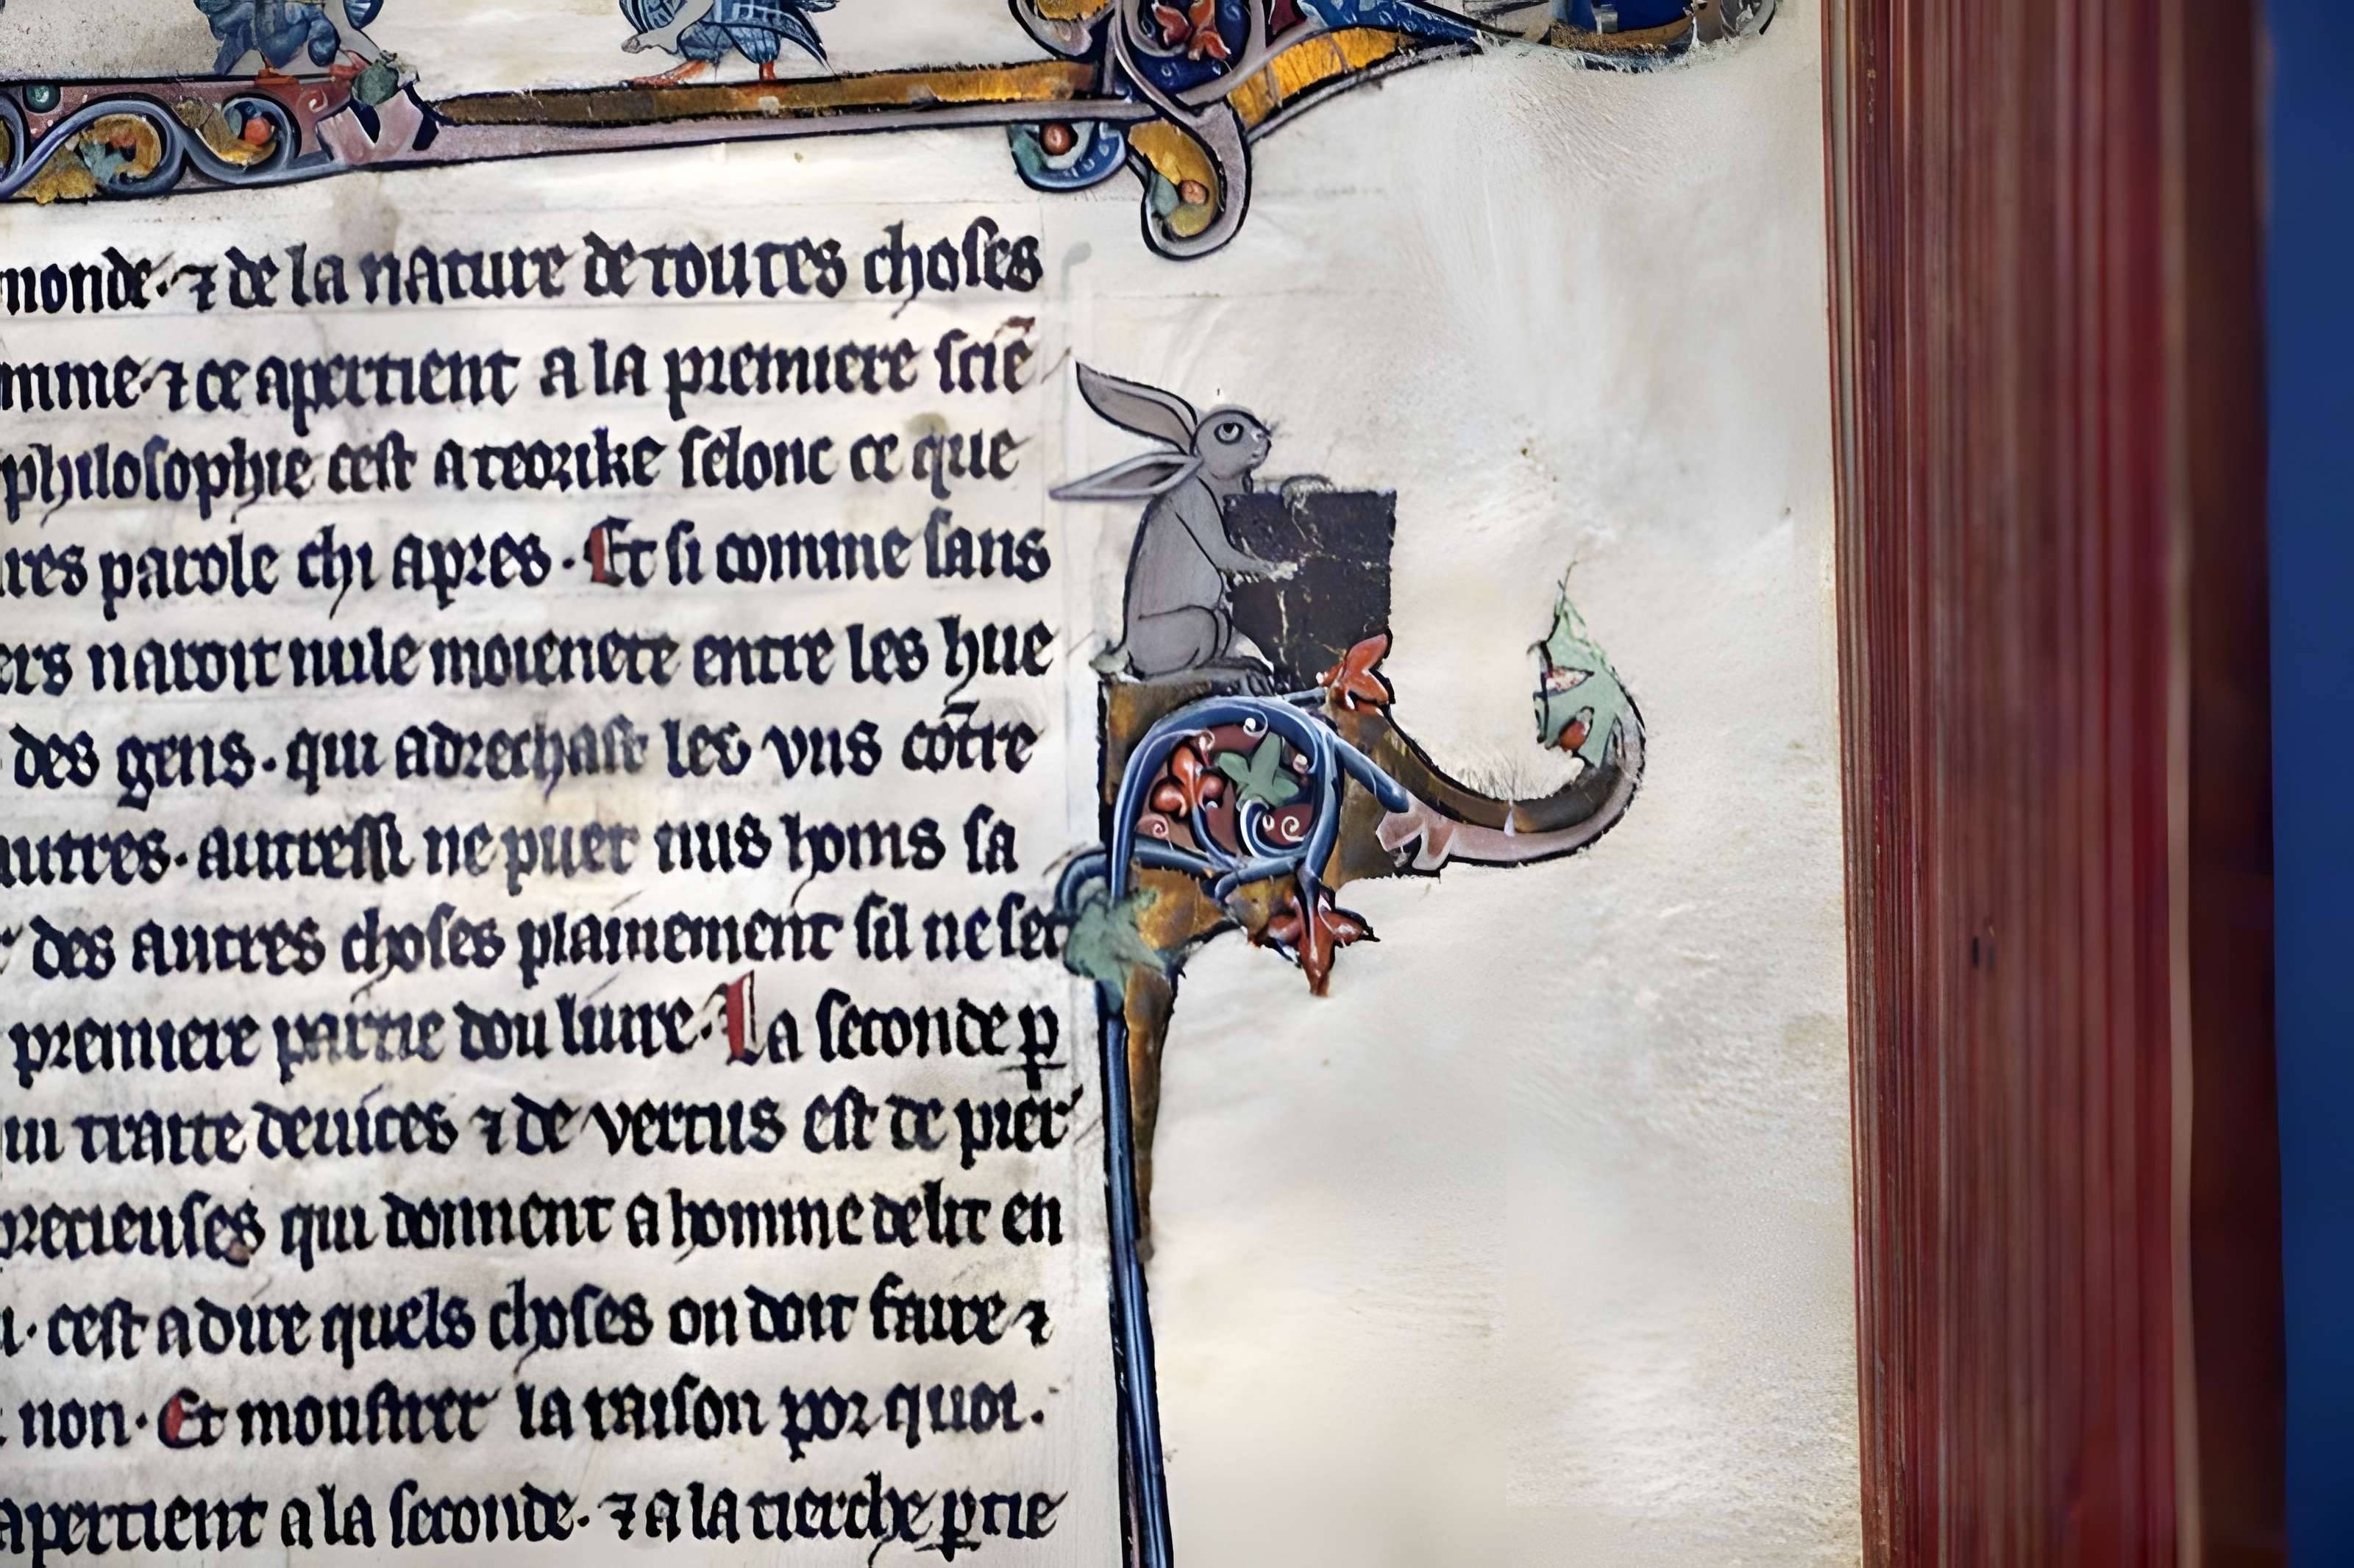 monde · ⁊ de la nature de toutes choses
mme · ⁊ ce apertient a la premiere sciē
philosophie cest a teorike selonc ce que
parole chi apres · Et si comme sans
ers naroit nule moienete entre les hue
des gens · qui adrechast les vns cōtre
autres · autressi ne puet nus homs sa
des autres choses plainement sil ne set
premiere partie dou liure · La seconde ꝑ
ui traite de uices ⁊ de vertus est de pier
precieuses qui donnent a homme delit en
cest a dire quels choses on doit faire ⁊
non · Et moustrer la raison por quoi ·
apertient a la seconde · ⁊ a la tierche ꝑtie